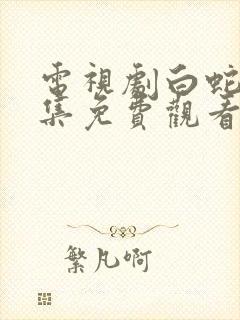 電視劇白蛇
集免費觀看
繁凡啊